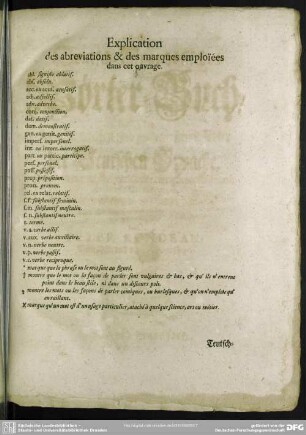 Explication
des abreviations & des marques emploïées
dans cet ouvrage.
abl. signifie ablatif.
abs. absolu.
acc. ou accus. accusatif.
adj. adjectif.
adv. adverbe.
conj. conjonction.
dat. datif.
dem. demonstratif.
gen. ou genit. genitif.
impers. impersonel.
int. ou interr. interrogatif.
part. ou partic. participe.
pers. personel.
poss. possessif.
prep. préposition.
pron. pronom.
rel. ou relat. relatif.
s. f. substantif feminin.
s. m. substantif masculin.
s. n. substantif neutre.
v. verbe.
v. a. verbe actif
v. aux. verbe auxiliaire.
v. n. verbe neutre.
v. p. verbe passif.
v. r. verbe reciproque.
* marque que la phrase ou le mot sont au figuré.
montre que le mot ou la façon de parler sont vulgaires & bas, & qu'ils n'entrent
point dans le beau stile, ni dans un discours poli.
montre les mots ou les façons de parler comiques, ou burlesques, & qu'on n'emploie qu'
en raillant.
marque qu'un mot est d'un usage particulier, ataché à quelque science, art ou métier.
Teutsch-
Sächsische Landesbibliothek -
Staats- und Universitätsbibliothek Dresden
gefördert von der
Deutschen Forschungsgemeinschaft
DFG